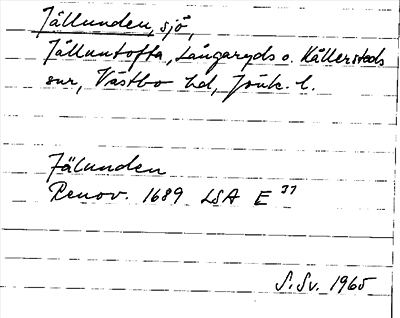 Jällunden, sjö,
Jälluntofta, Långaryds o. Källersteds
snr, Västbo hd, Jönk. l.
Jälunden
Renov. 1689 LSA E 77
S. Sv. 1965